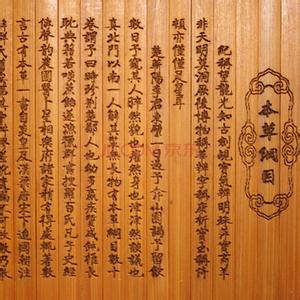 本草綱目
紀稱望龍光知古劍覘寶氣辨明珠故萍實商羊
非天明莫洞厥後博物稱華辨字稱康析寶玉稱倚
頓亦僅僅晨星耳
楚蘄陽李君東璧一日過予弇山園謁予留飲
數日予窺其人睟然貌也癯然身也津津然談議也
真北斗以南一人解其裝無長物有本草綱目數十
卷謂予曰時珍荊楚鄙人也幼多羸疾質成鈍椎長
耽典籍若啖蔗飴遂漁獵群書搜羅百氏凡子史經
傳聲韻農圃醫卜星相樂府諸家稍有得處輒著數
言古有本草一書自炎皇及漢梁唐宋下迨國朝註